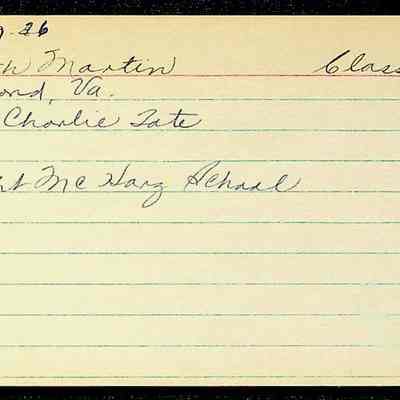 -26
Martin Class
ond, Va.
Charlie Tate
Mc Harg School